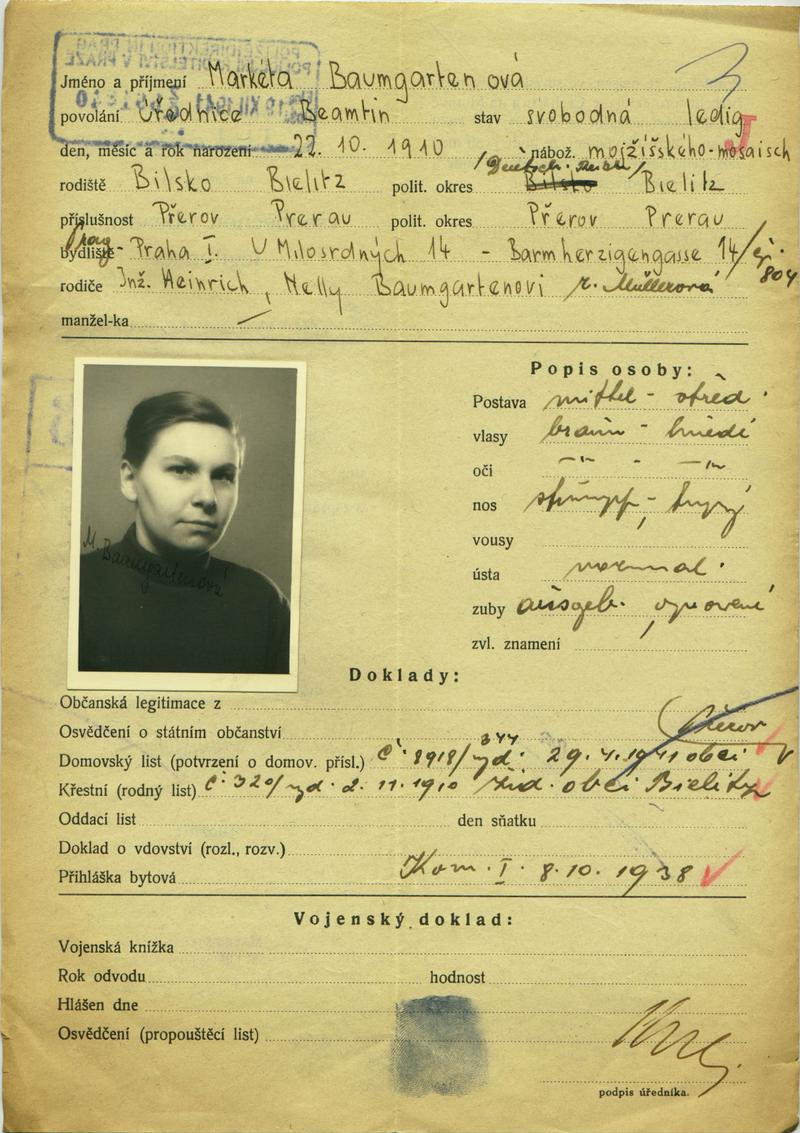 Jméno a příjmení Markéta Baumgartenová
povolání Úřednice Beamtin stav svobodná ledig
J
den, měsíc a rok narození 22. 10. 1910 nábož. mojžíšského-mosaisch
rodiště Bilsko Bielitz polit. okres Bilsko Bielitz
příslušnost Přerov Prerau polit. okres Přerov Prerau
Prag
bydliště - Praha I. U Milosrdných 14 - Barmherzigengasse 14/
804
rodiče Inž. Heinrich, Nelly Baumgartenovi r. Müllerová
manžel-ka
Popis osoby:
Postava mittel - střed.
vlasy braun - hnědé
oči
nos stumpf - tupý
vousy
ústa normal.
zuby ausgeb. vyspravené
zvl. znamení
M. Baumgartenová
Doklady:
Občanská legitimace z
Osvědčení o státním občanství
Přerov
344
Domovský list (potvrzení o domov. přísl.) č. 8918/ vyd. 29. 4. 1941 obcí
Křestní (rodný list) č. 320/ vyd. 2. 11. 1910 žid. obcí Bielitz
Oddací list den sňatku
Doklad o vdovství (rozl., rozv.)
Přihláška bytová Kom. I. 8. 10. 1938
Vojenský doklad:
Vojenská knížka
Rok odvodu hodnost
Hlášen dne
Osvědčení (propouštěcí list)
podpis úředníka.